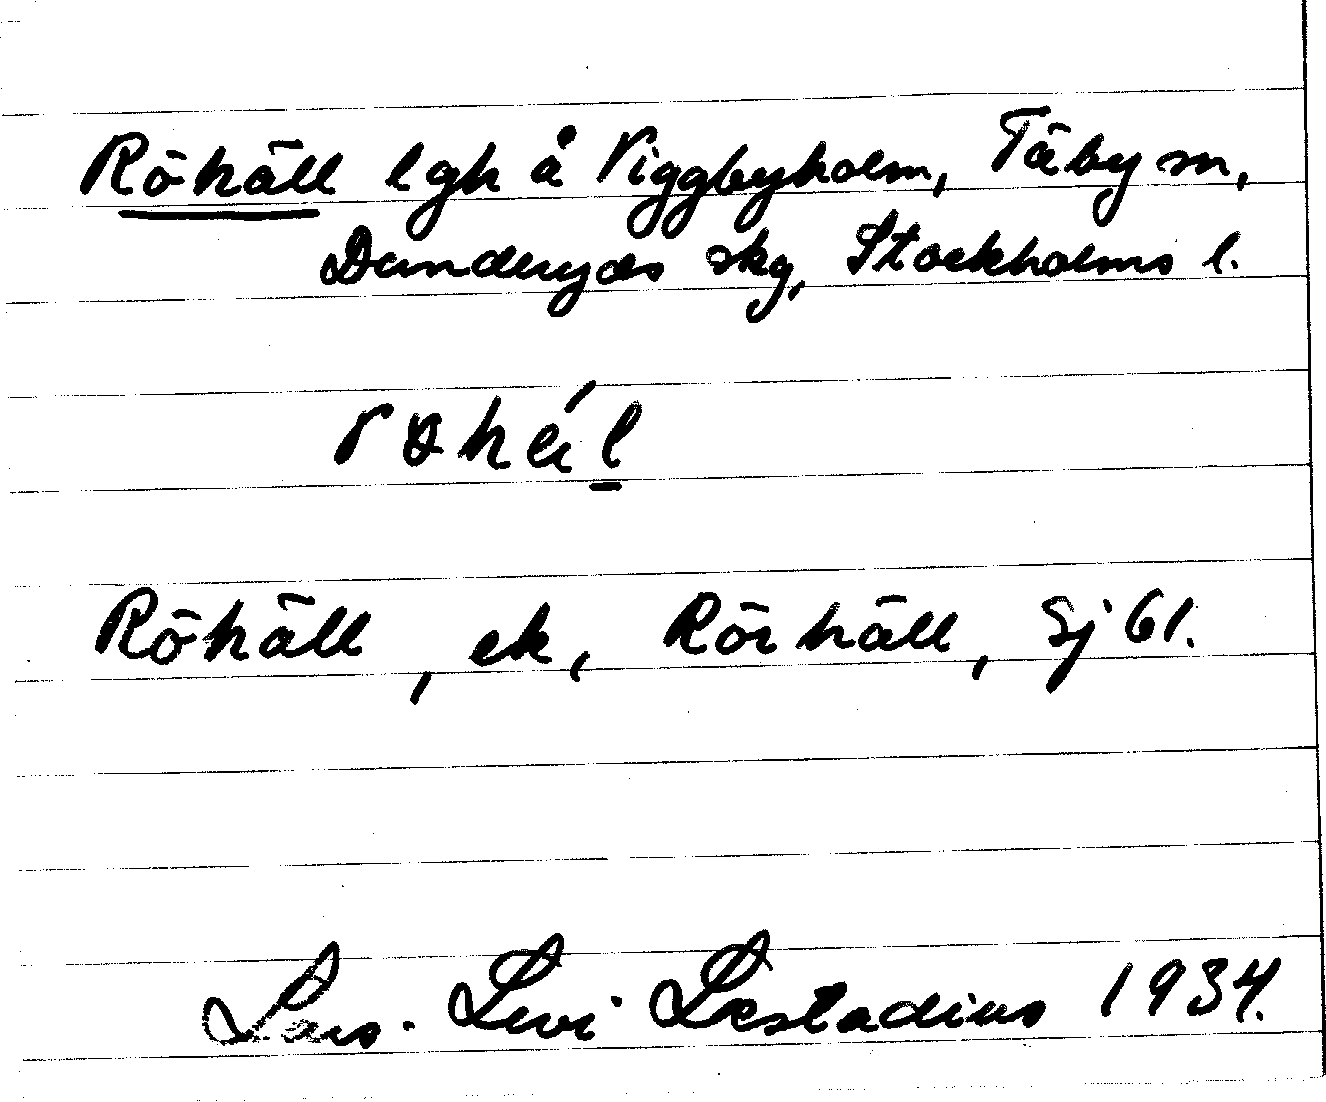 Röhäll lgh å Viggbyholm, Täby sn,
Danderyds skg, Stockholms l.
Röhäll, ek, Rörhäll, Sj 61.
Lars. Levi Læstadius 1934.